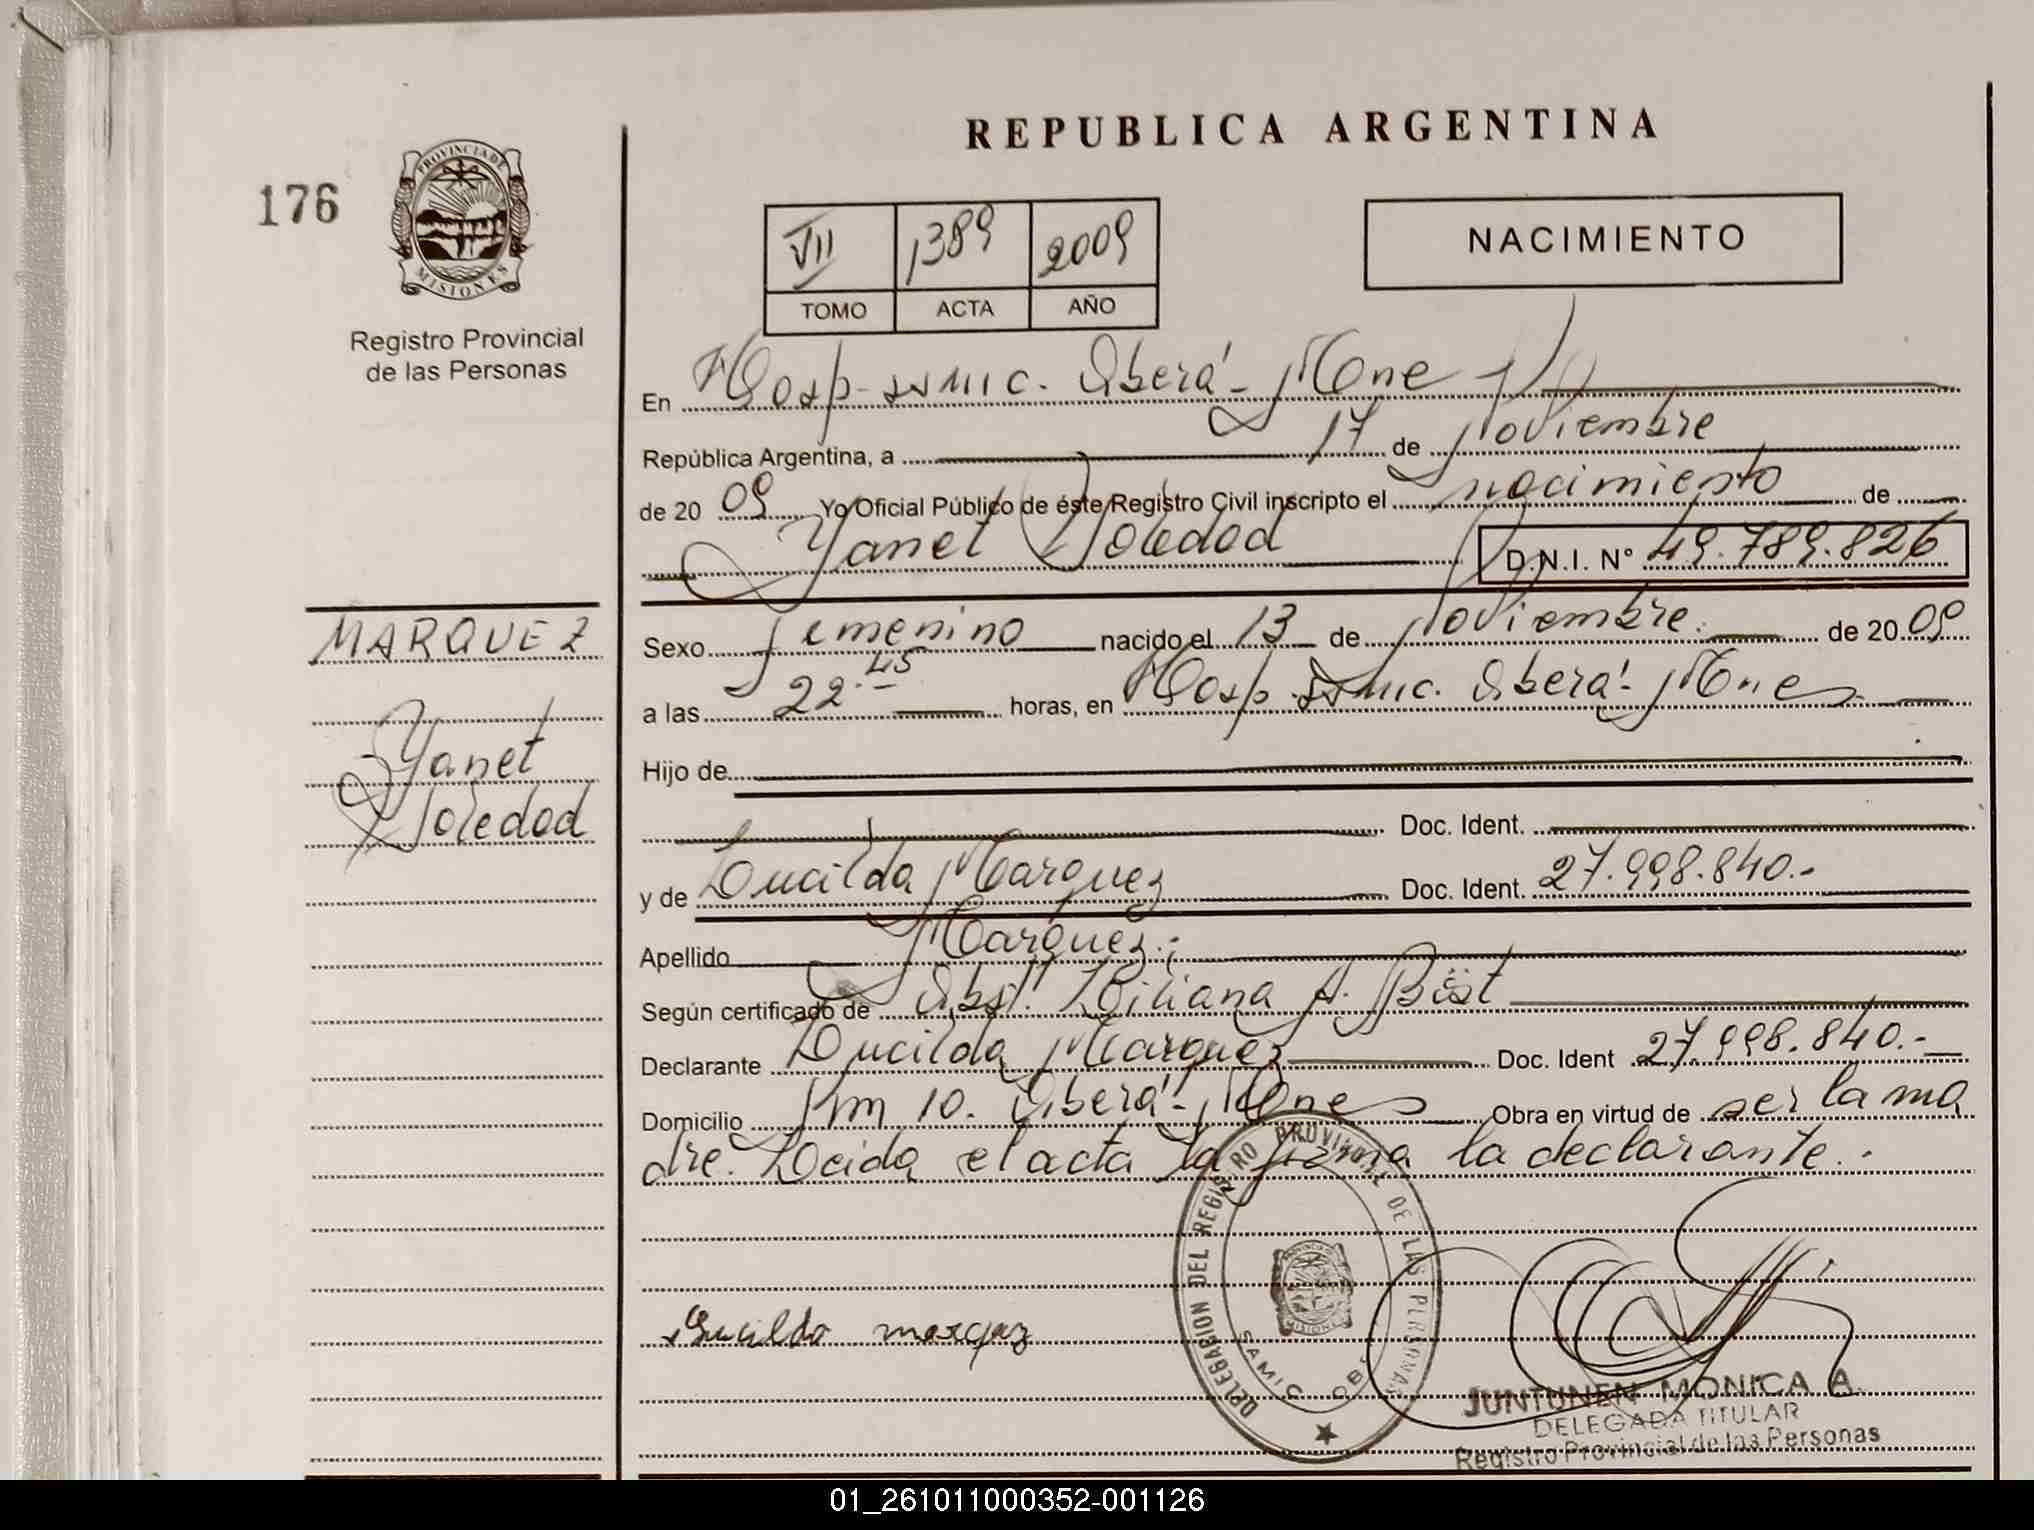 REPUBLICA ARGENTINA
176
PROVINCIA DE
MISIONES
Registro Provincial
de las Personas
VII 1389 2009
TOMO ACTA AÑO
NACIMIENTO
En Hosp. SAMIC. Oberá - Mnes
República Argentina, a 17 de Noviembre
de 20 09 Yo Oficial Público de éste Registro Civil inscripto el nacimiento de
Yanet Soledad D.N.I. Nº 49.789.826
MARQUEZ
Yanet
Soledad
Sexo femenino nacido el 13 de Noviembre. de 20 09
a las 22.45 horas, en Hosp. SAMIC. Oberá - Mnes
Hijo de
Doc. Ident.
y de Lucilda Marquez Doc. Ident. 27.998.840.-
Apellido Marquez.;
Según certificado de Obst. Liliana A. Bëst
Declarante Lucilda Marquez Doc. Ident 27.998.840.-
Domicilio Km 10. Oberá - Mnes Obra en virtud de ser la ma
dre. Leida el acta la firma la declarante.-
DELEGACION DEL REGISTRO PROVINCIAL DE LAS PERSONAS
SAMIC OB
Lucilda marquez
JUNTUNEN MONICA A.
DELEGADA TITULAR
Registro Provincial de las Personas
01_261011000352-001126